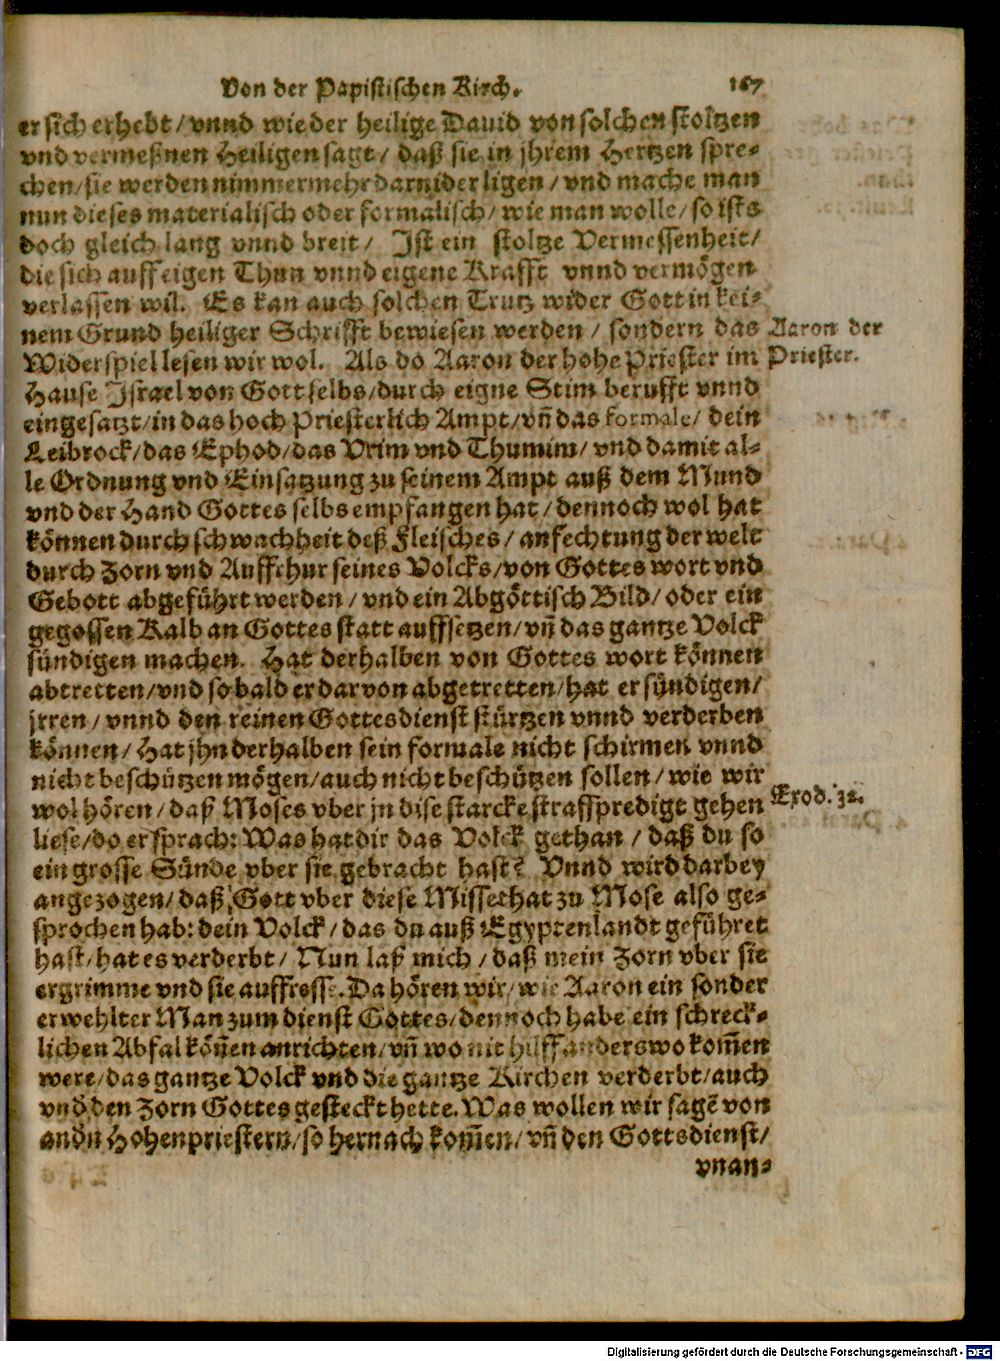 Von der Papistischen Kirch. 167
er sich erhebt/ vnnd wie der heilige Dauid von solchen stoltzen
vnd vermeßnen Heiligen sagt/ daß sie in jhrem Hertzen spre-
chen/ sie werden nimmermehr darnider ligen/ vnd mache man
nun dieses materialisch oder formalisch/ wie man wolle/ so ists
doch gleich lang vnnd breit/ Ist ein stoltze Vermessenheit/
die sich auff eigen Thun vnnd eigene Krafft vnnd vermögen
verlassen wil. Es kan auch solchen Trutz wider Gott in kei-
nem Grund heiliger Schrifft bewiesen werden/ sondern das
Aaron der
Widerspiel lesen wir wol. Als do Aaron der hohe Priester im
Priester.
Hause Israel von Gott selbs/ durch eigne Stim berufft vnnd
eingesatzt/ in das hoch Priesterlich Ampt/ vñ das formale/ dein
Leibrock/ das Ephod/ das Vrim vnd Thumim/ vnd damit al-
le Ordnung vnd Einsatzung zu seinem Ampt auß dem Mund
vnd der Hand Gottes selbs empfangen hat/ dennoch wol hat
können durch schwachheit deß Fleisches/ anfechtung der welt
durch Zorn vnd Auffrhur seines Volcks/ von Gottes wort vnd
Gebott abgeführt werden/ vnd ein Abgöttisch Bild/ oder ein
gegossen Kalb an Gottes statt auffsetzen/ vñ das gantze Volck
sündigen machen. Hat derhalben von Gottes wort können
abtretten/ vnd so bald er darvon abgetretten/ hat er sündigen/
jrren/ vnnd den reinen Gottesdienst stürtzen vnnd verderben
können/ Hat jhn derhalben sein formale nicht schirmen vnnd
nicht beschützen mögen/ auch nicht beschützen sollen/ wie wir
wol hören/ daß Moses vber jn dise starcke straffpredigt gehen
Exod. 32.
liese/ do er sprach: Was hat dir das Volck gethan/ daß du so
ein grosse Sünde vber sie gebracht hast? Vnnd wird darbey
angezogen/ daß Gott vber diese Missethat zu Mose also ge-
sprochen hab: dein Volck/ das du auß Egyptenlandt geführet
hast/ hat es verderbt/ Nun laß mich/ daß mein Zorn vber sie
ergrimme vnd sie auffresse. Da hören wir/ wie Aaron ein sonder
erwehlter Man zum dienst Gottes/ dennoch habe ein schreck-
lichen Abfal köñen anrichten/ vñ wo nit hilff anderswo kom̃en
were/ das gantze Volck vnd die gantze Kirchen verderbt/ auch
vnd̕ den Zorn Gottes gesteckt hette. Was wollen wir sagẽ von
and̕n Hohenpriestern/ so hernach kom̃en/ vñ den Gottsdienst/
vnan-
Digitalisierung gefördert durch die Deutsche Forschungsgemeinschaft - DFG